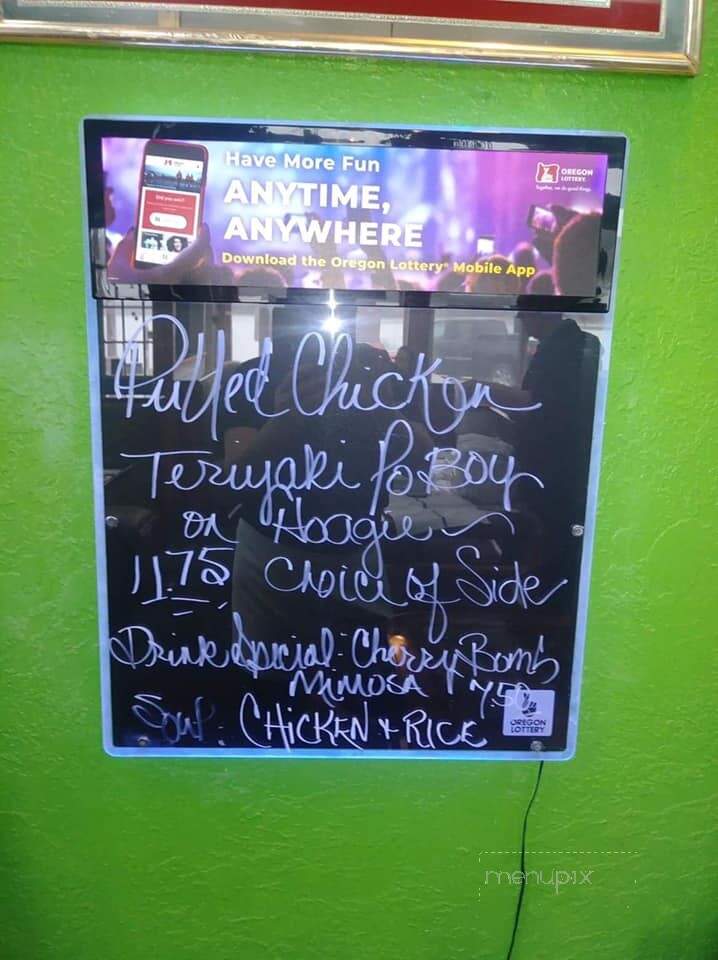 Have More Fun
ANYTIME,
ANYWHERE
Download the Oregon Lottery® Mobile App
OREGON
LOTTERY
Together, we do good things.
Pulled Chicken
Teriyaki Po Boy
on Hoagie
11.75 choice of Side
Drink Special: Cherry Bomb
MiMOSA 7.50
Soup: CHICKEN + RICE
OREGON
LOTTERY
menupix